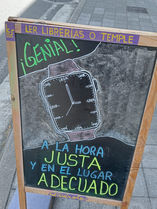 LER LIBRERÍAS O TEMPLE
¡GENIAL!
A LA HORA
JUSTA
Y EN EL LUGAR
ADECUADO